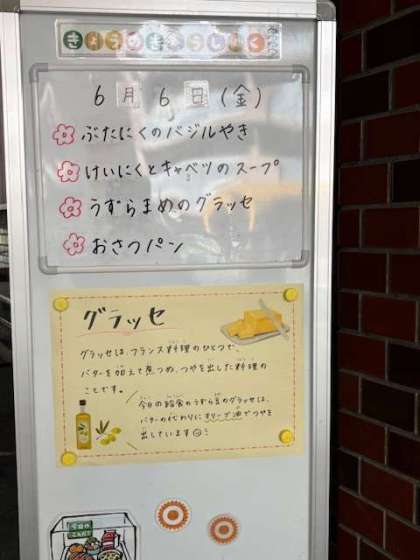 きょうのきゅうしょく
6月6日(金)
ぶたにくのバジルやき
けいにくとキャベツのスープ
うずらまめのグラッセ
おさつパン
グラッセ
グラッセは、フランス料理のひとつで、
バターを加えて煮つめ、つやを出した料理の
ことです。
今日の給食のうずら豆のグラッセは、
バターの代わりにオリーブ油でつやを
出しています!
今日の
こんだて